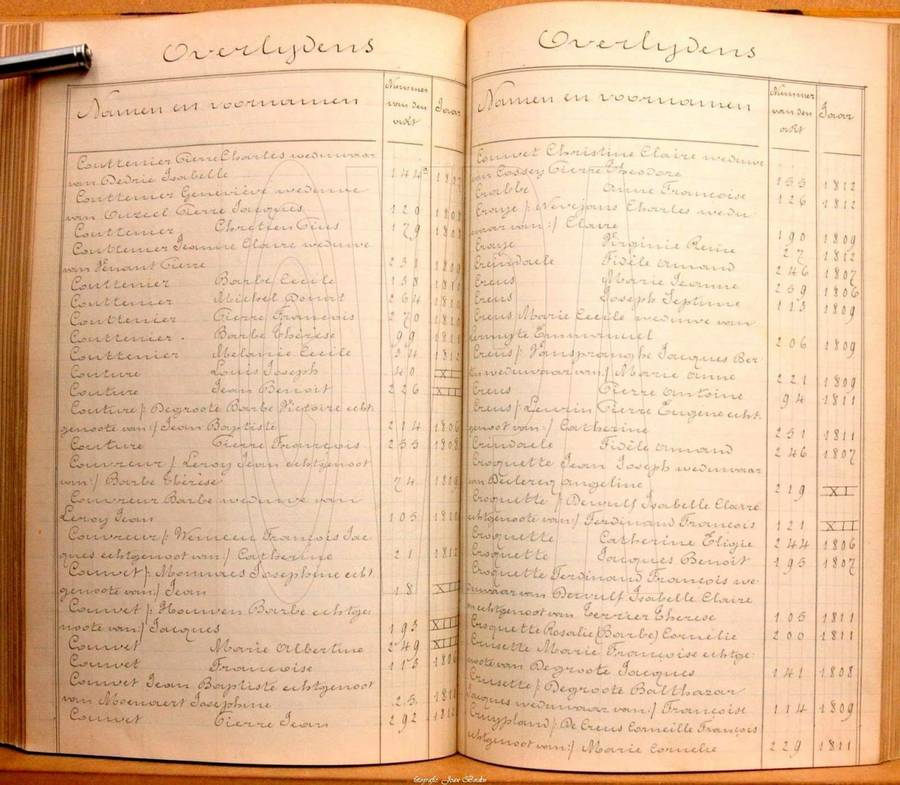 Overlijdens
Namen en voornamen Nummer van den akt Jaar
Couttenier Pierre Charles weduwaar
van Dedrie Isabelle 144
Couttenier Geneviève weduwe
van Ouzeel Pierre Jacques 129 1808
Couttenier Chrétien Pius 179 1808
Couttenier Jeanne Claire weduwe
van Venant Pierre 231 1810
Couttenier Barbe Cecile 138
Couttenier Michel Donat 264
Couttenier Pierre François 270
Couttenier Barbe Thérèse 99
Couttenier Melanie Cecile 34 1812
Couture Louis Joseph 40 XI
Couture Jean Benoit 226
Couture /: Degroote Barbe Victoire echt-
genote van :/ Jean Baptiste 214 1806
Couture Pierre François 253 1808
Couvreur /: Leroy Jean echtgenoot
van :/ Barbe Thérèse 74
Couvreur Barbe weduwe van
Leroy Jean 105
Couvreur /: François Jac-
ques echtgenoot van :/ Catherine 21 1812
Couvet /: Josephine echt-
genoote van :/ Jean 18
Couvet /: Houwen Barbe echtge-
noote van :/ Jacques 193 XII
Couvet Marie Albertine 249
Couvet Françoise 1806
Couvet Jean Baptiste echtgenoot
van Moenaert Josephine 25
Couvet Pierre Jean 292
Overlijdens
Namen en voornamen Nummer van den akt Jaar
Couvet Christine Claire weduwe
van Cossey Pierre Théodore 155 1812
Crabbe Anne Françoise 126 1812
Craye /: Nevejans Charles wedu-
waar van :/ Claire 190 1809
Craye Virginie Reine 27 1812
Creindaele Fidèle Amand 246 1807
Creus Marie Jeanne 259 1806
Creus Joseph Septime 113 1809
Creus Marie Cecile weduwe van
Emmanuel 206 1809
Creus /: Vanspranghe Jacques Ber-
weduwaar van :/ Marie Anne 221 1809
Creus Pierre Antoine 94 1811
Creus /: Leurin Pierre Eugene echt-
genoot van :/ Catherine 251 1811
Crindaele Fidèle Amand 246 1807
Croquette Jean Joseph weduwaar
van Declercq Angeline 219 XI
Croquette /: Dewulf Isabelle Claire
echtgenoote van :/ Ferdinand François 121 XII
Croquette Catherine Eligie 244 1806
Croquette Jacques Benoit 195 1807
Croquette Ferdinand François we-
duwaar van Dervulf Isabelle Claire
en echtgenoot van Terrier Therese 105 1811
Croquette Rosalie (Barbe) Cornélie 200 1811
Crusette Marie Françoise echtge-
noote van Degroote Jacques 141 1808
Creusette /: Degroote Balthazar
Jacques weduwaar van :/ Françoise 114 1809
Cruypland /: De Creus Corneille François
echtgenoot van :/ Marie Cornelie 229 1811